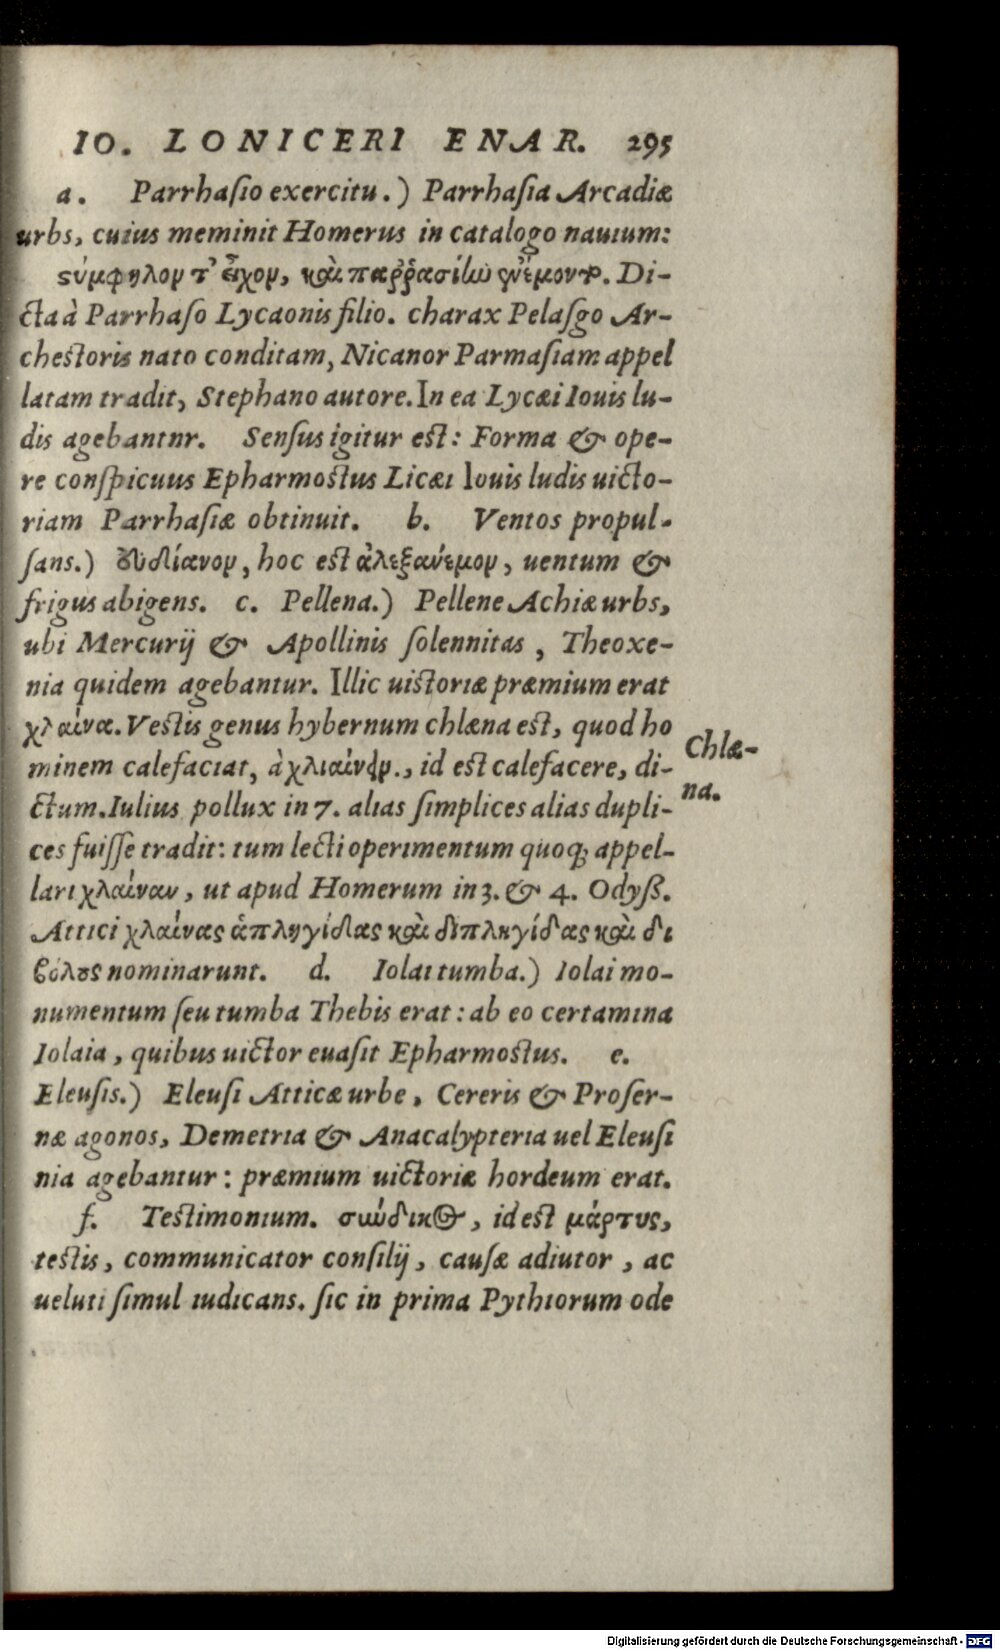 IO. LONICERI ENAR. 295
a. Parrhaſio exercitu.) Parrhaſia Arcadiæ
urbs, cuius meminit Homerus in catalogo nauium:
ςύμφηλον τ' εἶχον, καὶ παῤῥασίην ἐνέμοντο. Di-
cta à Parrhaſo Lycaonis filio. charax Pelaſgo Ar-
cheſtoris nato conditam, Nicanor Parmaſiam appel
latam tradit, Stephano autore. In ea Lycæi Iouis lu-
dis agebantnr. Senſus igitur eſt: Forma & ope-
re conſpicuus Epharmoſtus Licæi Iouis ludis uicto-
riam Parrhaſiæ obtinuit. b. Ventos propul-
ſans.) εὐδίανον, hoc eſt ἀλεξανέμον, uentum &
frigus abigens. c. Pellena.) Pellene Achiæ urbs,
ubi Mercurij & Apollinis ſolennitas, Theoxe-
nia quidem agebantur. Illic uiſtoriæ præmium erat
χλαίνα. Veſtis genus hybernum chlæna eſt, quod ho
minem calefaciat, à χλιαίνειν., id eſt calefacere, di-
ctum. Iulius pollux in 7. alias ſimplices alias dupli-
ces fuiſſe tradit: tum lecti operimentum quoq; appel-
lari χλαίναν, ut apud Homerum in 3. & 4. Odyß.
Attici χλαίνας ἁπληγίδας καὶ διπληγίδας καὶ δι
βόλους nominarunt. d. Iolai tumba.) Iolai mo-
numentum ſeu tumba Thebis erat: ab eo certamina
Iolaia, quibus uictor euaſit Epharmoſtus. e.
Eleuſis.) Eleuſi Atticæ urbe, Cereris & Proſer-
næ agonos, Demetria & Anacalypteria uel Eleuſi
nia agebantur: præmium uictoriæ hordeum erat.
f. Teſtimonium. σύνδικος, id eſt μάρτυς,
teſtis, communicator conſilij, cauſæ adiutor, ac
ueluti ſimul iudicans. ſic in prima Pythiorum ode
Chlæ-
na.
Digitalisierung gefördert durch die Deutsche Forschungsgemeinschaft - DFG